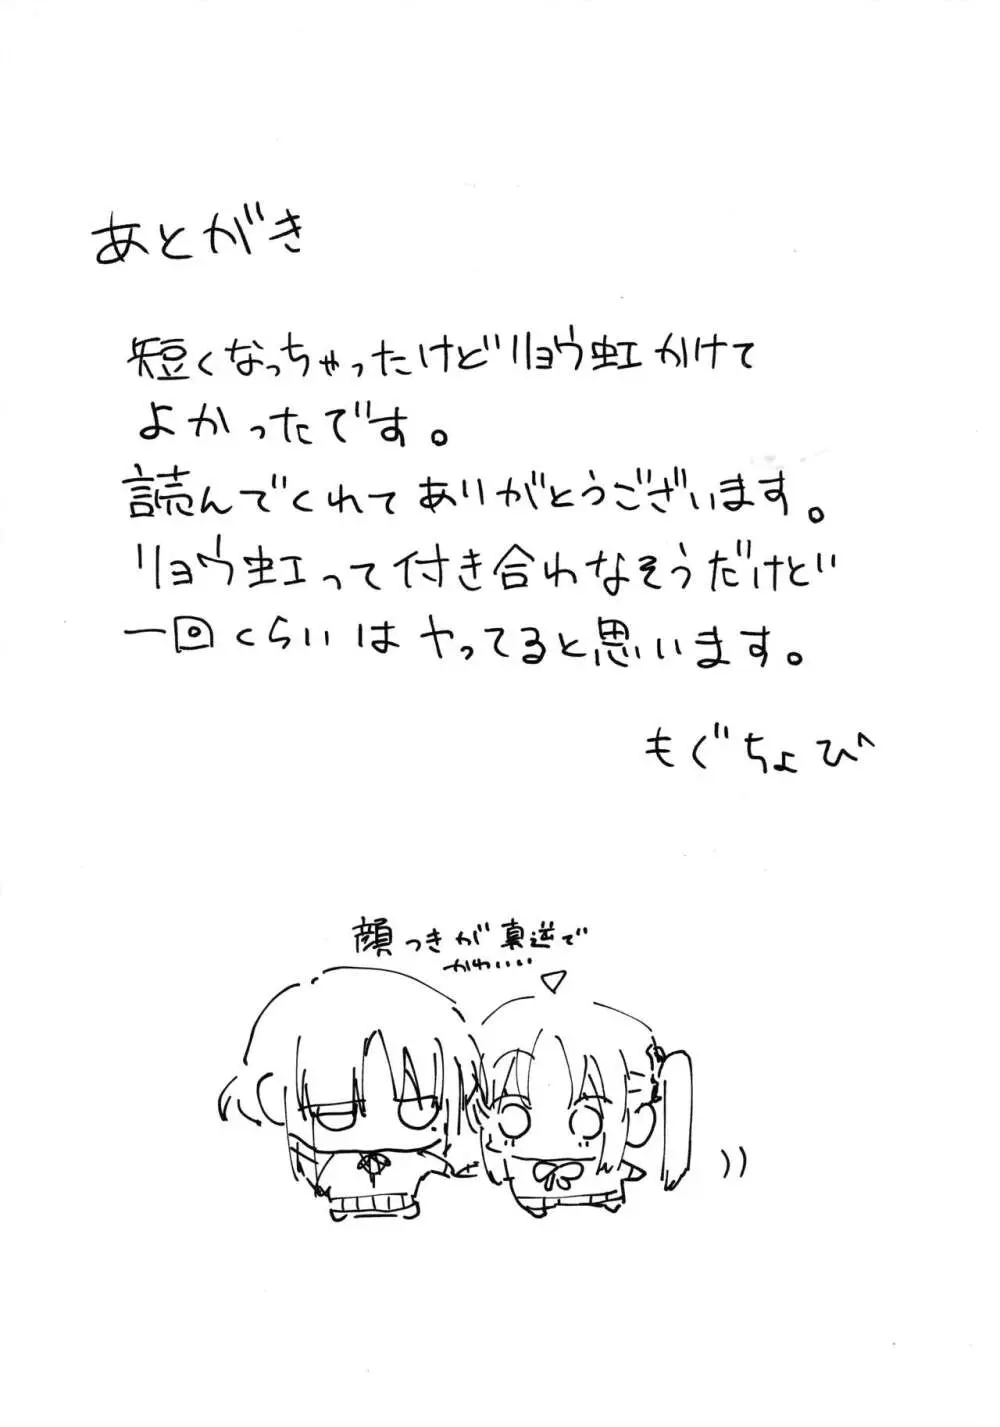 あとがき
短くなっちゃったけどリョウ虹かけて
よかったです。
読んでくれてありがとうございます。
リョウ虹って付き合わなそうだけど
一回くらいはヤってると思います。
もぐちょぴ
顔つきが真逆で
かわいい